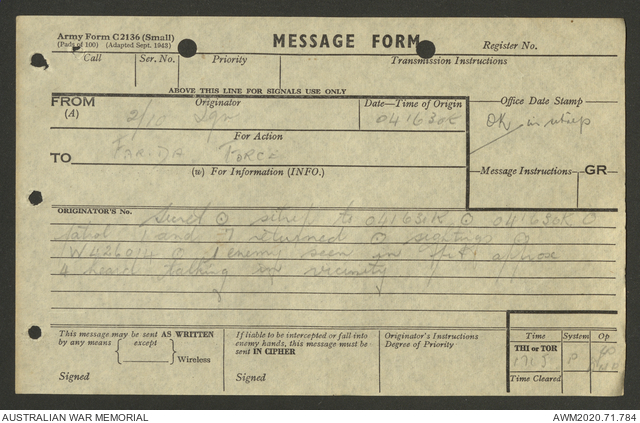 Army Form C2136 (Small)
(Pads of 100) (Adapted Sept. 1943)
MESSAGE FORM
Register No.
Call Ser. No. Priority Transmission Instructions
ABOVE THIS LINE FOR SIGNALS USE ONLY
FROM Originator Date—Time of Origin Office Date Stamp
(A) 2/10 Sqn 041630K
OK in sitrep
For Action
TO FARIDA FORCE
(w) For Information (INFO.) Message Instructions GR
ORIGINATOR'S No. Secret ⊙ sitrep to 041630K ⊙ 041630K ⊙
patrol 1 and 7 returned ⊙ sightings ⊙
W426014 ⊙ 1 enemy seen in hut aprox
4 heard talking in vicinity
This message may be sent AS WRITTEN
by any means except Wireless
Signed
If liable to be intercepted or fall into
enemy hands, this message must be
sent IN CIPHER
Signed
Originator's Instructions
Degree of Priority
Time System Op
THI or TOR
1715 P
Time Cleared
AUSTRALIAN WAR MEMORIAL AWM2020.71.784